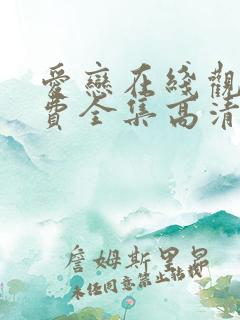 愛戀在綫觀
費全集高清
詹姆斯里昂
未经同意禁止转载